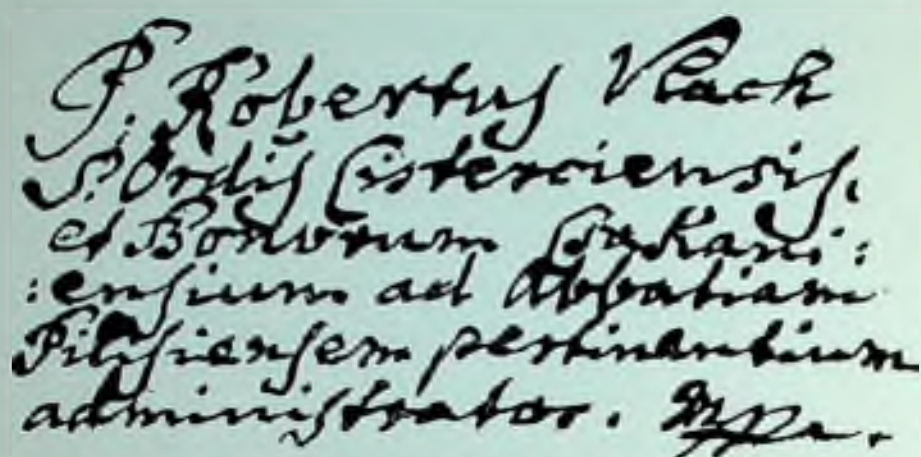 P. Robertus Vlach
S. Ordis Cisterciensis.
et Bonorum Csakani:
:ensium ad Abbatiam
Pilisiensem pertinentium
administrator. Mpr.